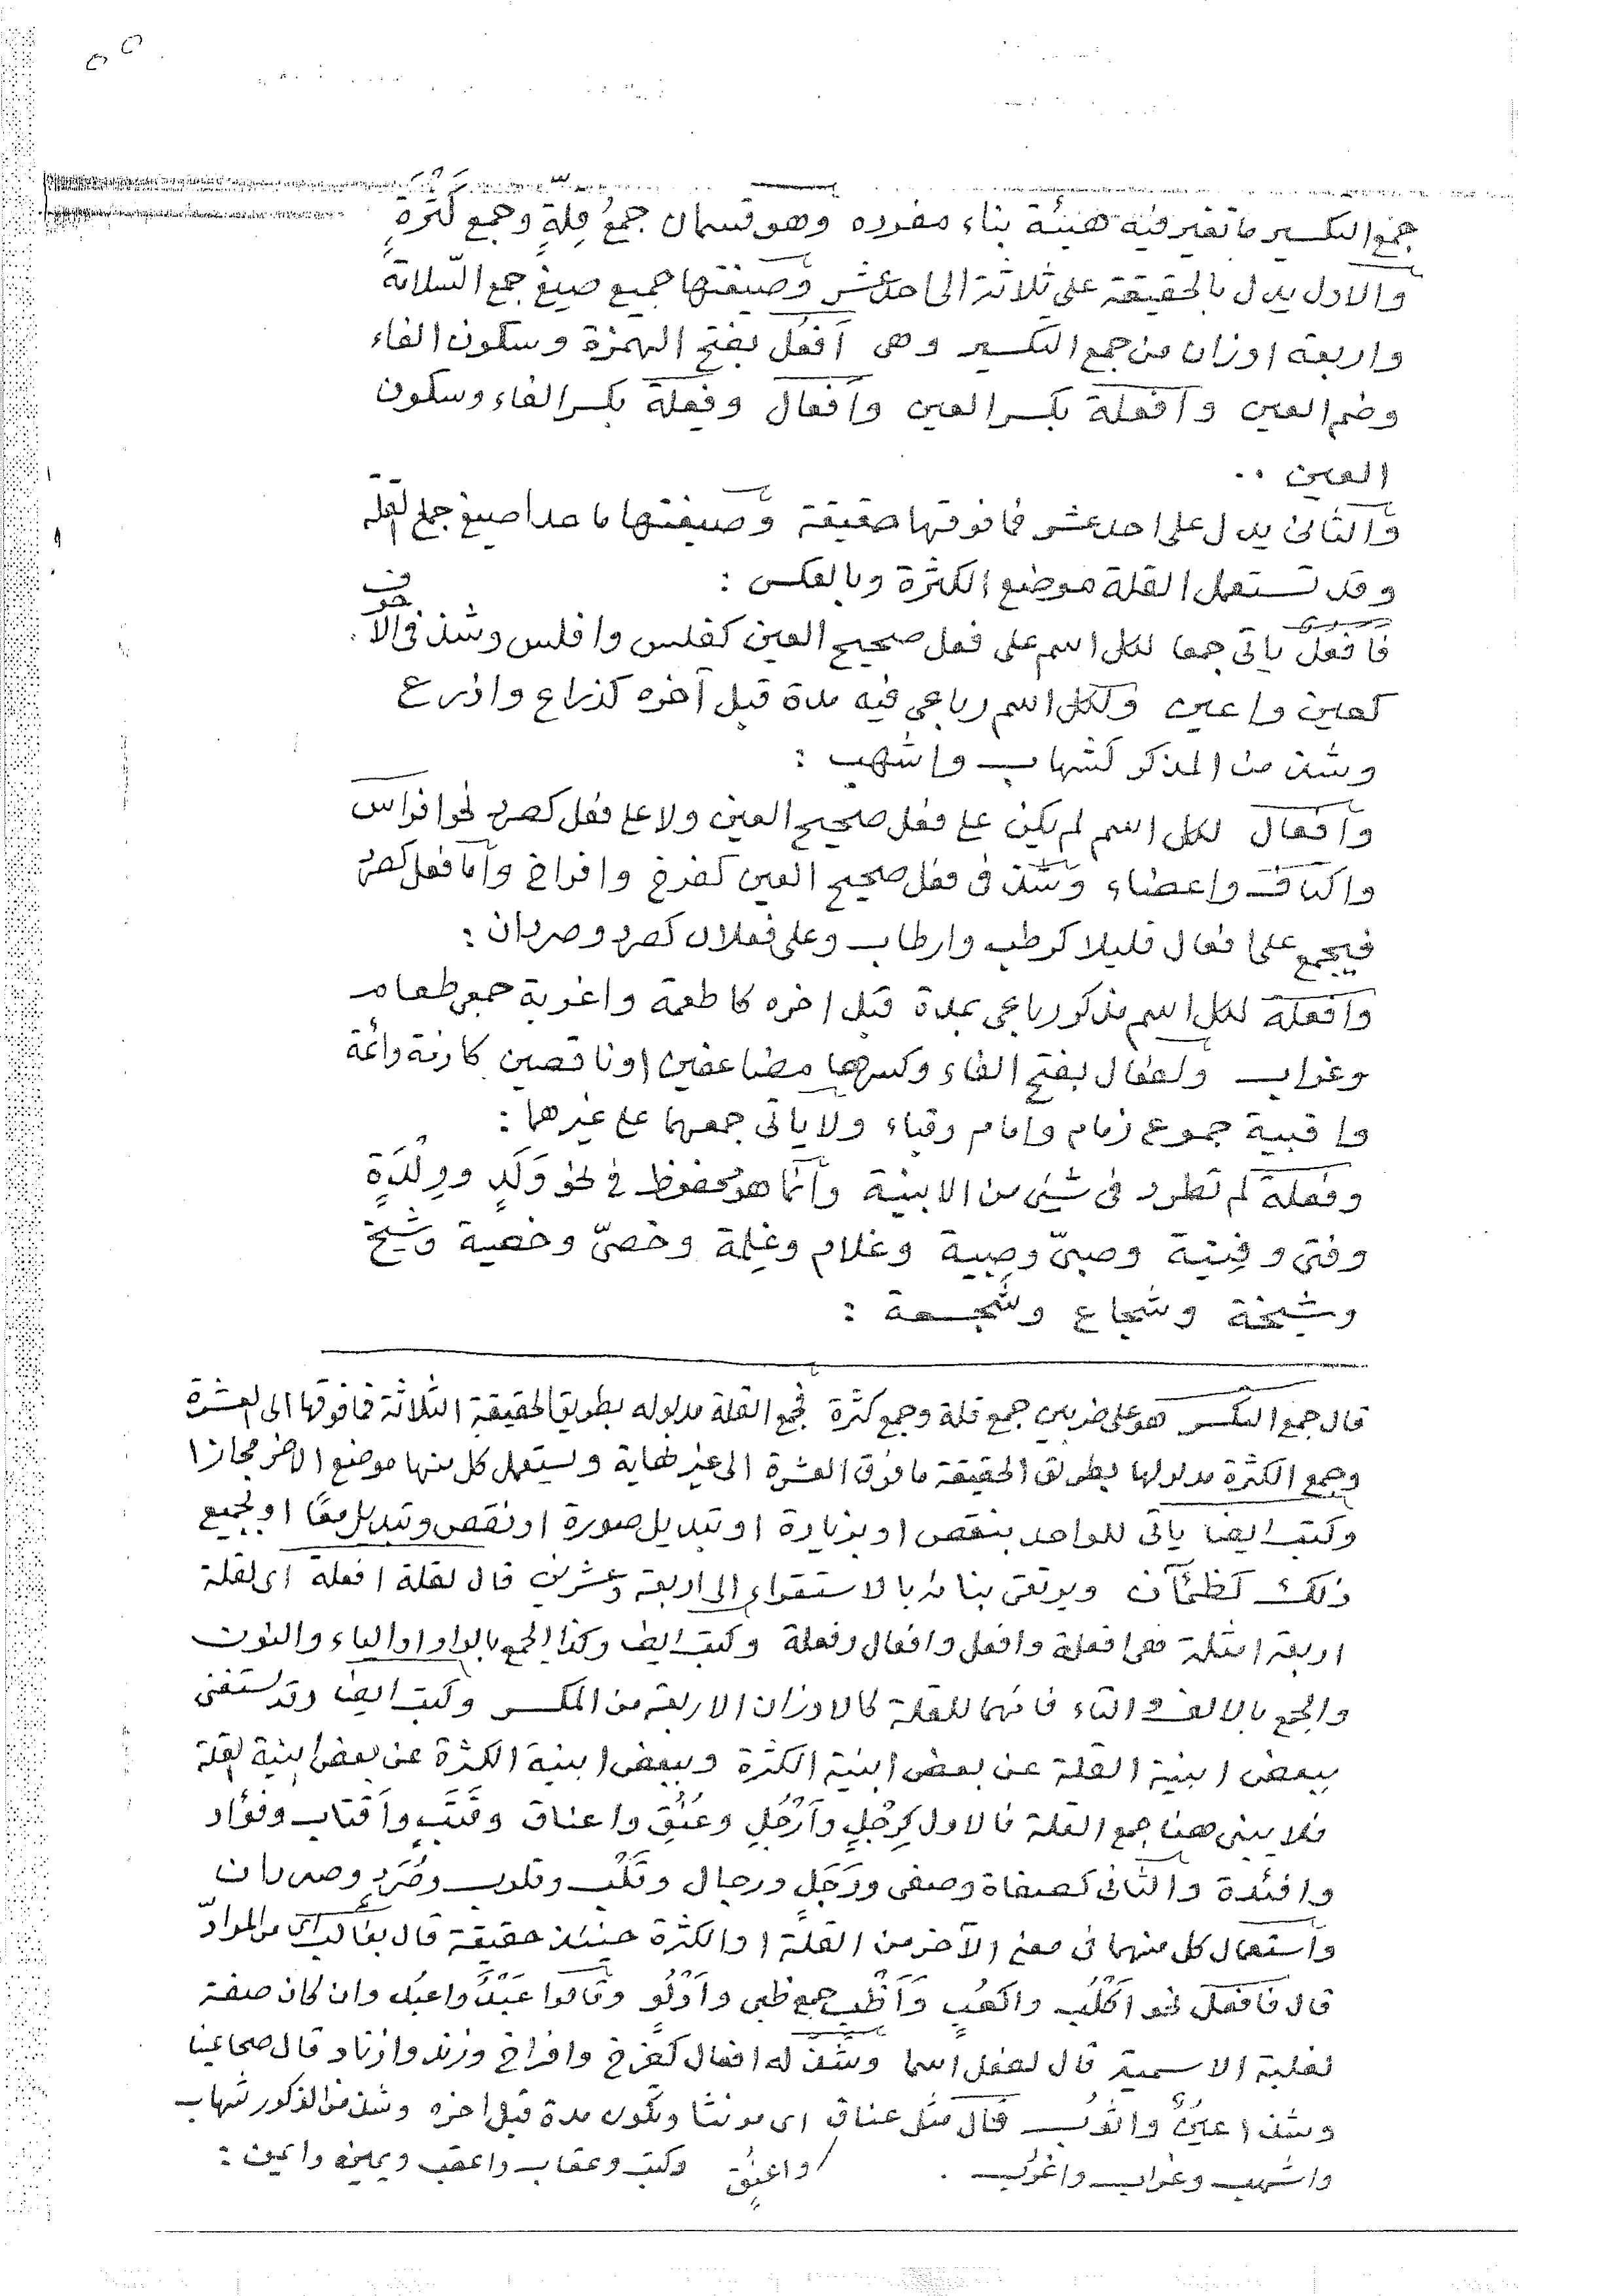 ٥٥
جمع التكسير ما تغير فيه هيئة بناء مفرده وهو قسمان جمعُ قِلّةٍ وجمع كَثْرَةٍ
والاول يدل بالحقيقة على ثلاثة الى احد عشر وصيغتها جميع صيغ جمع السّلامة
واربعة اوزان من جمع التكسير وهى أفعُل بفتح الهمزة وسكون الفاء
وضم العين وأفعلة بكسر العين وأفعال وفِعلة بكسر الفاء وسكون
العين ..
والثانى يدل على احد عشر فما فوقها حقيقة وصيغتها ما عدا صيغ جمع القلة
وقد تستعمل القلة موضع الكثرة وبالعكس :
فافعل ياتى جمعا لكل اسم على فعل صحيح العين كفلس وافلس وشذ فى الاجوف
كعين واعين ولكل اسم رباعى فيه مدة قبل آخره كذراع واذرع
وشذ من المذكر كشهاب واشهب :
وأفعال لكل اسم لم يكن على فعل صحيح العين ولا على فعل كصرد نحو افراس
واكتاف واعضاء وشذ فى فعل صحيح العين كفرخ وافراخ وأما فعل كصرد
فيجمع على افعال قليلا كرطب وارطاب وعلى فعلان كصرد وصردان :
وأفعلة لكل اسم مذكر رباعى بمدة قبل اخره كاطعمة واغربة جمعى طعام
وغراب ولفعال بفتح الفاء وكسرها مضاعفين او ناقصين كازمة وائمة
واقبية جموع زمام وامام وقباء ولا ياتى جمعهما على غيرهما :
وفعلة لم تطرد فى شيئ من الابنية وانما هو محفوظ فى نحو وَلَدٍ ووِلْدَةٍ
وفتى وفِتية وصبىّ وصِبية وغلام وغِلمة وخصىّ وخصية وشيخ
وشيخة وشجاع وشجعة :
قال جمع التكسير هو على ضربين جمع قلة وجمع كثرة فجمع القلة مدلوله بطريق الحقيقة الثلاثة فما فوقها الى العشرة
وجمع الكثرة مدلولها بطريق الحقيقة ما فوق العشرة الى غير نهاية ويستعمل كل منها موضع الاخر مجازا
وكتب ايضا ياتى للواحد بنقص او بزيادة او تبديل صورة او نقص وتبديل معًا او بجميع
ذلك كظمآن ويرتقى بنائه بالاستقراء الى اربعة وعشرين قال لقلة افعلة اى لقلة
اربعة امثلة هى افعلة وافعل وافعال وفعلة وكتب ايضا وكذا الجمع بالواو او الياء والنون
والجمع بالالف والتاء فانهما للقلة كالاوزان الاربعة من المكسر وكتب ايضا وقد يستغنى
ببعض ابنية القلة عن بعض ابنية الكثرة وببعض ابنية الكثرة عن بعض ابنية القلة
فلا يبنى هنا جمع القلة فالاول كرِجْلٍ وأَرْجُلٍ وعُنُقٍ واعناق وقَتَبٍ وأَقتاب وفؤاد
وافئدة والثانى كصفاة وصفى ورَجُلٍ ورجال وقَلْبٍ وقلوب وصُرَدٍ وصردان
واستعمال كل منهما فى معنى الآخر من القلة او الكثرة حينئذ حقيقة قال بغالب اى من المواد
قال فافعل نحو اَكْلُبٍ واكعُبٍ وَأَظْبٍ جمع ظبى وأَدْلُوٍ وقالوا عَبْدٌ واعبُد وان كان صفة
لغلبة الاسمية قال لفعل اسما وشذ له افعال كفرخ وافراخ وزند وازناد قال صحا عينا
وشذ اعيُنٌ واثوُب قال مثل عناق اى مونثا وتكون مدة قبل اخره وشذ من الذكور شهاب
واشهب وغراب واغرُب . / واعنُق وكتب وعقاب واعقب ويمين وايمن :